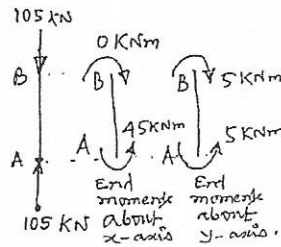 105 KN
0 KNm
B
B
B
5 KNm
45 KNm
5 KNm
A
A
A
105 KN
End
moments
about
x-axis
End
moments
about
y-axis.